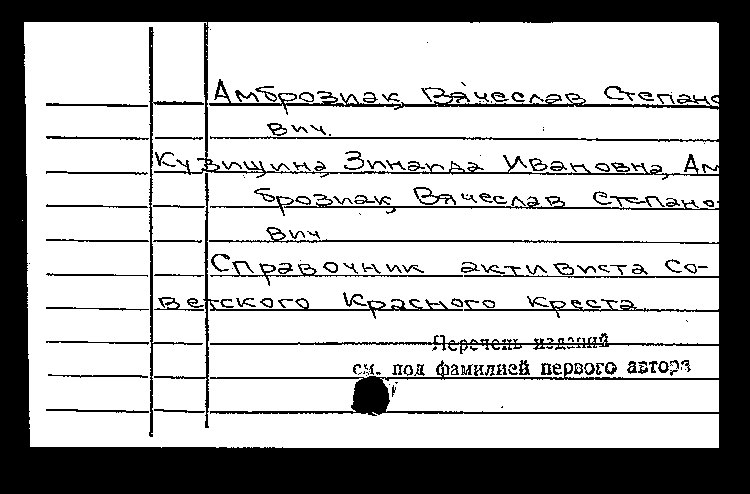 Амброзиак, Вячеслав Степано
вич.
Кузищина, Зинаида Ивановна, Ам
брозиак, Вячеслав Степано-
вич
Справочник активиста Со-
ветского Красного Креста
Перечень изданий
см. под фамилией первого автора